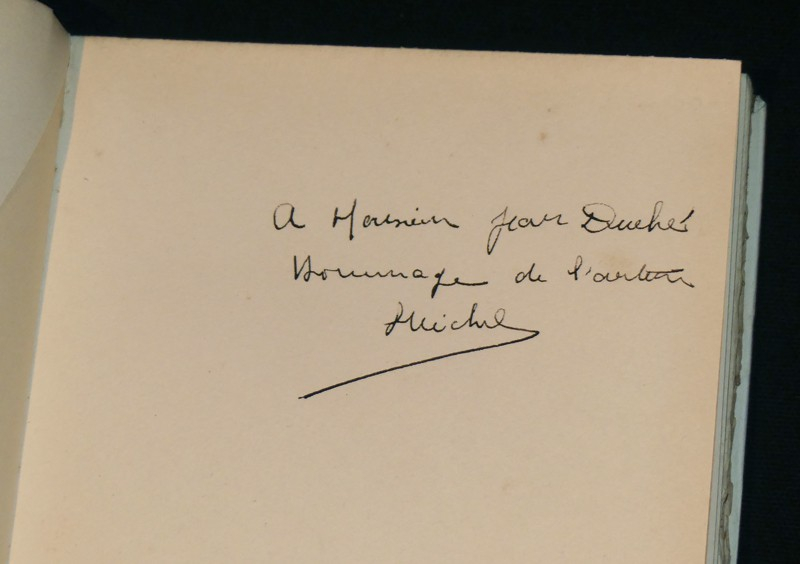 A Monsieur Jean Duché
Hommage de l'auteur
Michel